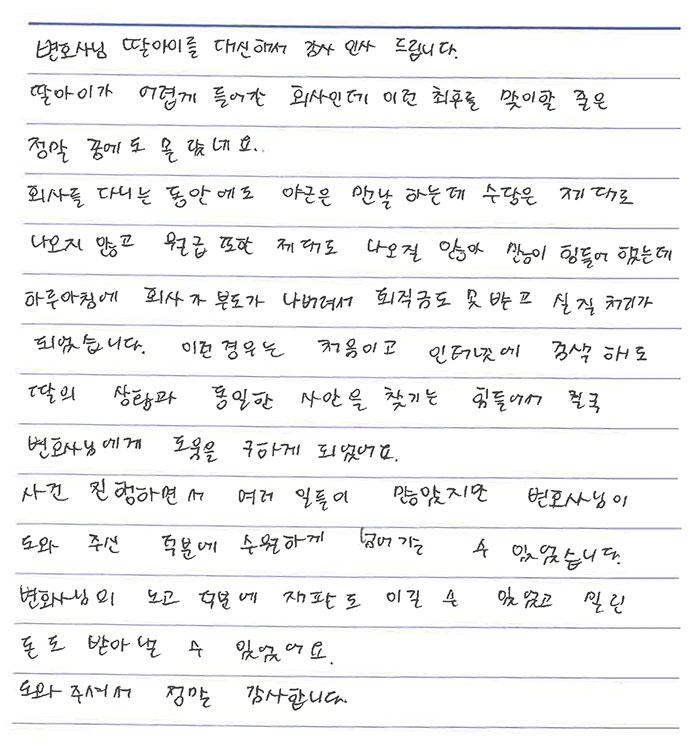 변호사님 딸아이를 대신해서 감사 인사 드립니다.
딸아이가 어렵게 들어간 회사인데 이런 최후를 맞이할 줄은
정말 꿈에도 몰랐네요..
회사를 다니는 동안에도 야근은 만날 하는데 수당은 제대로
나오지 않고 월급 또한 제대로 나오질 않아 많이 힘들어 했는데
하루아침에 회사가 부도가 나버려서 퇴직금도 못 받고 실직 처리가
되었습니다. 이런 경우는 처음이고 인터넷에 검색해도
딸의 상황과 동일한 사안을 찾기는 힘들어서 결국
변호사님에게 도움을 구하게 되었어요.
사건 진행하면서 여러 일들이 많았지만 변호사님이
도와 주신 덕분에 수월하게 넘어가는 수 있었습니다.
변호사님의 노고 덕분에 재판도 이길 수 있었고 밀린
돈도 받아낼 수 있었어요.
도와주셔서 정말 감사합니다.